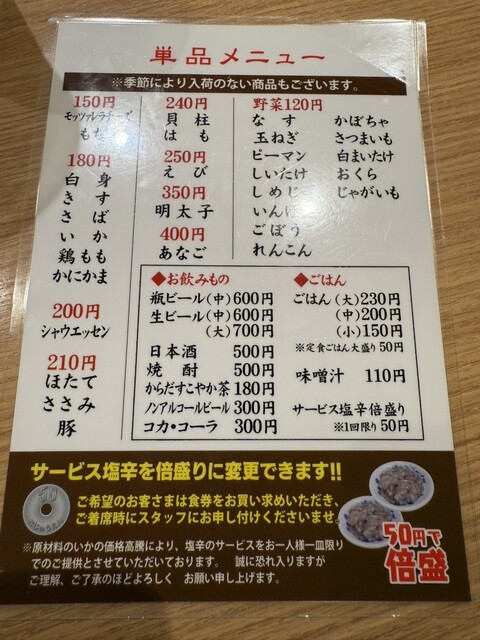 単品メニュー
※季節により入荷のない商品もございます。
150円
モッツァレラチーズ
もち
180円
白身
きす
さば
いか
鶏もも
かにかま
200円
シャウエッセン
210円
ほたて
ささみ
豚
240円
貝柱
はも
250円
えび
350円
明太子
400円
あなご
野菜120円
なす
玉ねぎ
ピーマン
しいたけ
しめじ
いんげ
ごぼう
れんこん
かぼちゃ
さつまいも
白まいたけ
おくら
じゃがいも
◆お飲みもの
瓶ビール(中)600円
生ビール(中)600円
(大)700円
日本酒 500円
焼酎 500円
からだすこやか茶 180円
ノンアルコールビール 300円
コカ・コーラ 300円
◆ごはん
ごはん(大)230円
(中)200円
(小)150円
※定食ごはん大盛り50円
味噌汁 110円
サービス塩辛倍盛り
※1回限り50円
サービス塩辛を倍盛りに変更できます!!
ご希望のお客さまは食券をお買い求めいただき、
ご着席時にスタッフにお申し付けくださいませ。
50円で
倍盛
※原材料のいかの価格高騰により、塩辛のサービスをお一人様一皿限り
でのご提供とさせていただいております。 誠に恐れ入りますが
ご理解、ご了承のほどよろしく お願い申し上げます。